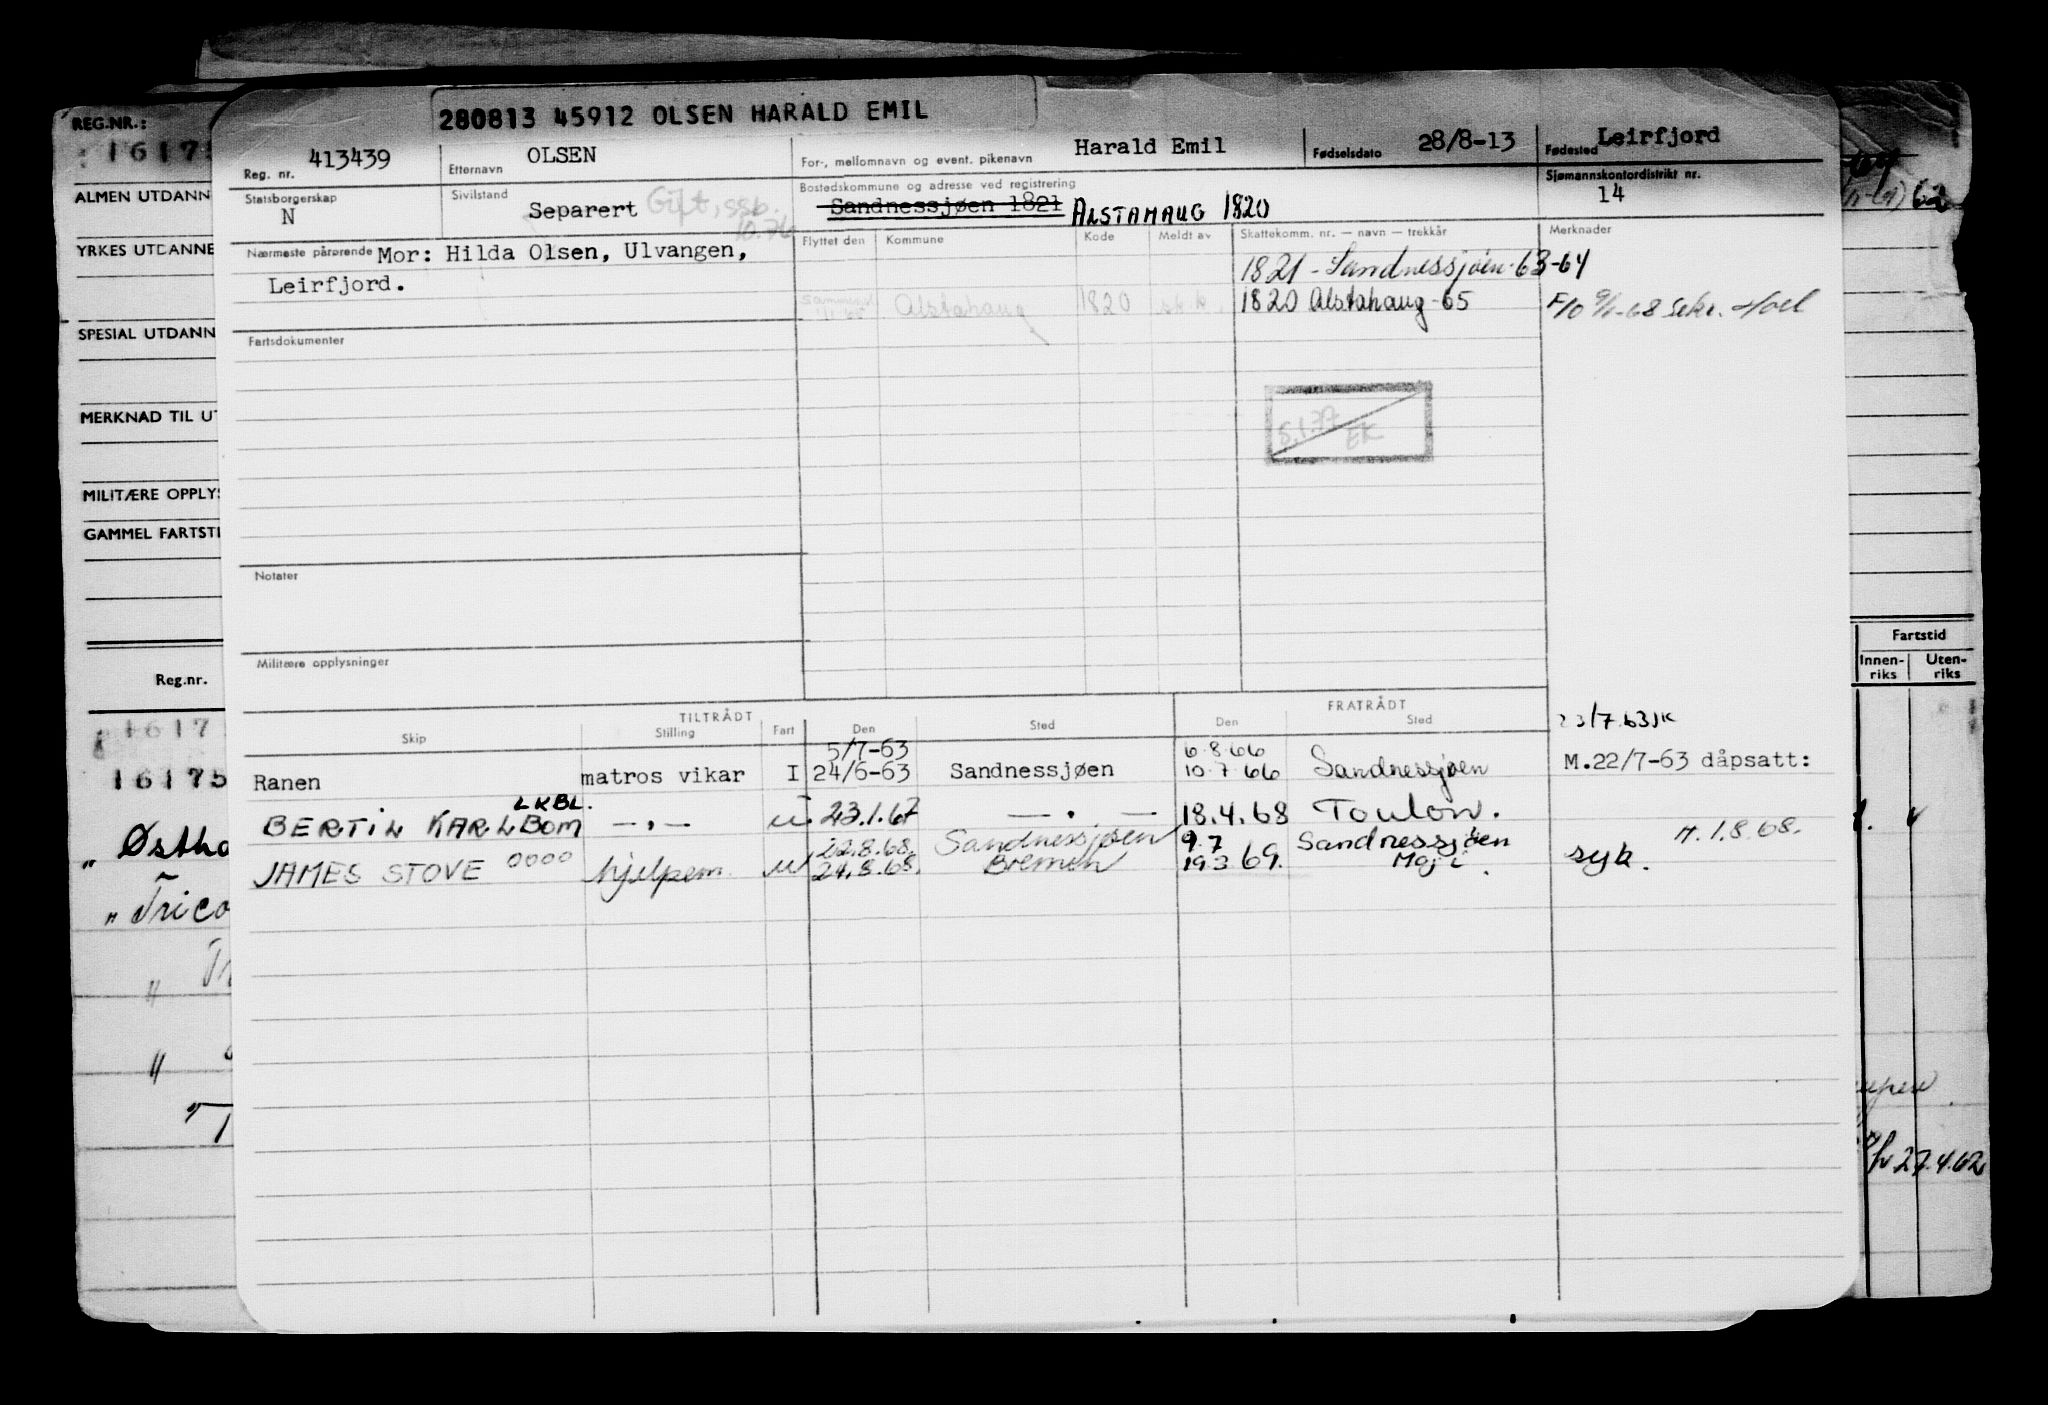 280813 45912 OLSEN HARALD EMIL
REG.NR.:
Reg. nr. 413439
Etternavn OLSEN
For-, mellomnavn og event. pikenavn Harald Emil
Fødselsdato 28/8-13
Fødested Leirfjord
Statsborgerskap N
Sivilstand Separert Gift, ssb. 10.76
Bostedskommune og adresse ved registrering
Sandnessjøen 1821 ALSTAHAUG 1820
Sjømannskontordistrikt nr. 14
62
Nærmeste pårørende Mor: Hilda Olsen, Ulvangen,
Leirfjord.
Flyttet den Kommune Kode Meldt av Skattekomm. nr. — navn — trekkår Merknader
1821 - Sandnessjøen - 63-64
Alstahaug 1820 1820 Alstahaug - 65
Fartsdokumenter
5.1.77 EK
Notater
Militære opplysninger
ALMEN UTDANN
YRKES UTDANNE
SPESIAL UTDANN
MERKNAD TIL UT
MILITÆRE OPPLYS
GAMMEL FARTSTI
Reg.nr.
Fartstid
Innen-riks Uten-riks
TILTRÅDT FRATRÅDT
Skip Stilling Fart Den Sted Den Sted
23/7.63JK
5/7-63 6.8.66
Ranen matros vikar I 24/6-63 Sandnessjøen 10.7.66 Sandnessjøen M.22/7-63 dåpsatt:
LKBL.
BERTIL KARLBOM — " — u. 23.1.67 — " — 18.4.68 Toulon.
22.8.68. Sandnessjøen 9.7 Sandnessjøen H. 1.8.68.
JAMES STOVE 0000 hjelpem. u 24.8.68. Bremen 19.3 69. Moji. syk.
16175
Østh
" Trico
27.4.62